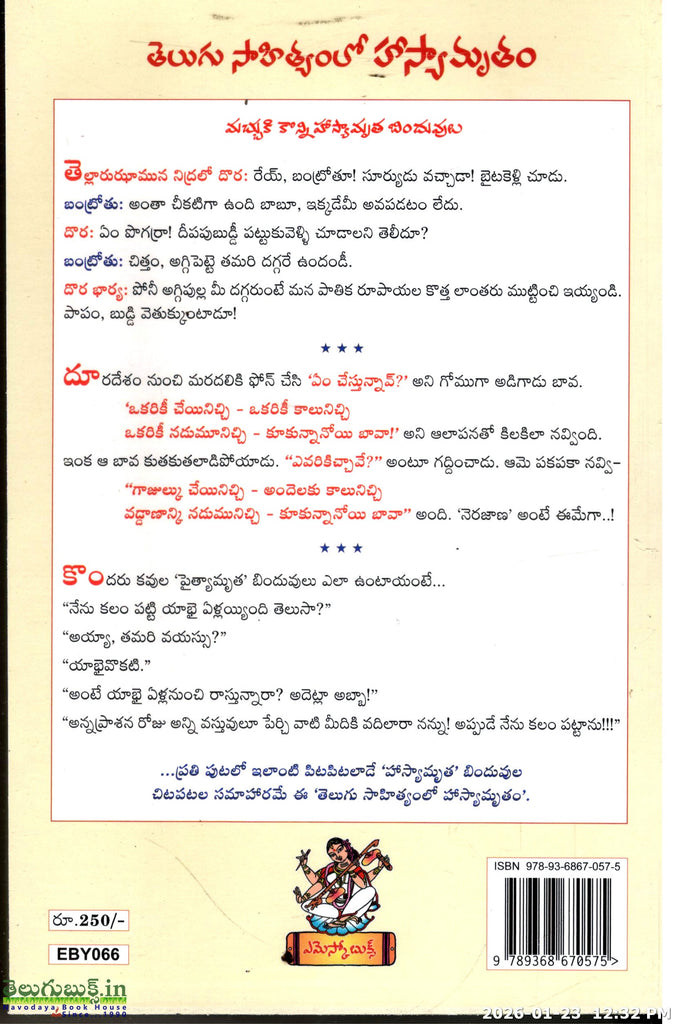 తెలుగు సాహిత్యంలో హాస్యామృతం
మచ్చుకి కొన్ని హాస్యామృత బిందువులు
తెల్లారుఝామున నిద్రలో దొర: రేయ్, బంట్రోతూ! సూర్యుడు వచ్చాడా! బైటకెళ్లి చూడు.
బంట్రోతు: అంతా చీకటిగా ఉంది బాబూ, ఇక్కడేమీ అవపడటం లేదు.
దొర: ఏం పొగర్రా! దీపపుబుడ్డీ పట్టుకువెళ్ళి చూడాలని తెలీదూ?
బంట్రోతు: చిత్తం, అగ్గిపెట్టె తమరి దగ్గరే ఉందండీ.
దొర భార్య: పోనీ అగ్గిపుల్ల మీ దగ్గరుంటే మన పాతిక రూపాయల కొత్త లాంతరు ముట్టించి ఇయ్యండి.
పాపం, బుడ్డి వెతుక్కుంటాడూ!
★ ★ ★
దూరదేశం నుంచి మరదలికి ఫోన్ చేసి ‘ఏం చేస్తున్నావ్?’ అని గోముగా అడిగాడు బావ.
‘ఒకరికీ చేయినిచ్చి - ఒకరికీ కాలునిచ్చి
ఒకరికీ నడుమూనిచ్చి - కూకున్నానోయి బావా!’ అని ఆలాపనతో కిలకిలా నవ్వింది.
ఇంక ఆ బావ కుతకుతలాడిపోయాడు. “ఎవరికిచ్చావే?” అంటూ గద్దించాడు. ఆమె పకపకా నవ్వి–
“గాజుల్కు చేయినిచ్చి - అందెలకు కాలునిచ్చి
వడ్డాణాన్కి నడుమునిచ్చి - కూకున్నానోయి బావా” అంది. ‘నెరజాణ’ అంటే ఈమేగా..!
★ ★ ★
కొందరు కవుల ‘పైత్యామృత’ బిందువులు ఎలా ఉంటాయంటే...
“నేను కలం పట్టి యాభై ఏళ్లయ్యింది తెలుసా?”
“అయ్యా, తమరి వయస్సు?”
“యాభైవొకటి.”
“అంటే యాభై ఏళ్లనుంచి రాస్తున్నారా? అదెట్లా అబ్బా!”
“అన్నప్రాశన రోజు అన్ని వస్తువులూ పేర్చి వాటి మీదికి వదిలారా నన్ను! అప్పుడే నేను కలం పట్టాను!!!”
...ప్రతి పుటలో ఇలాంటి పిటపిటలాడే ‘హాస్యామృత’ బిందువుల
చిటపటల సమాహారమే ఈ ‘తెలుగు సాహిత్యంలో హాస్యామృతం’.
ఎమెస్కో బుక్స్
ISBN 978-93-6867-057-5
9 789368 670575 >
రూ.250/-
EBY066
తెలుగుబుక్స్.in
Navodaya Book House
Since...1990
2026-01-23 12:32 PM